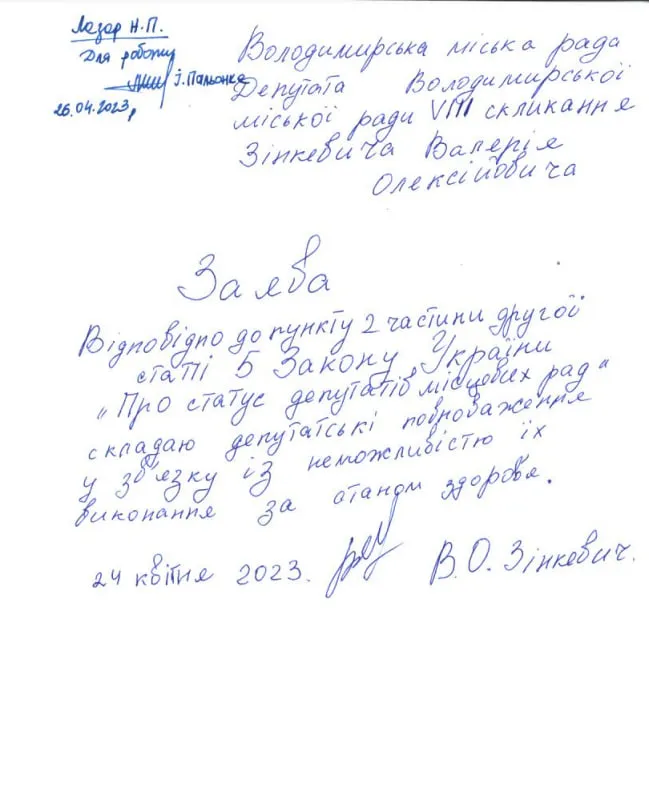 Лазар Н.П.
Для роботи
І. Пальонка
26.04.2023,
Володимирська міська рада
Депутата Володимирської
міської ради VIII скликання
Зінкевича Валерія
Олексійовича
Заява
Відповідно до пункту 2 частини другої
статті 5 Закону України
„Про статус депутатів місцевих рад“
складаю депутатські повноваження
у зв'язку із неможливістю їх
виконання за станом здоров'я.
24 квітня 2023. В.О. Зінкевич.